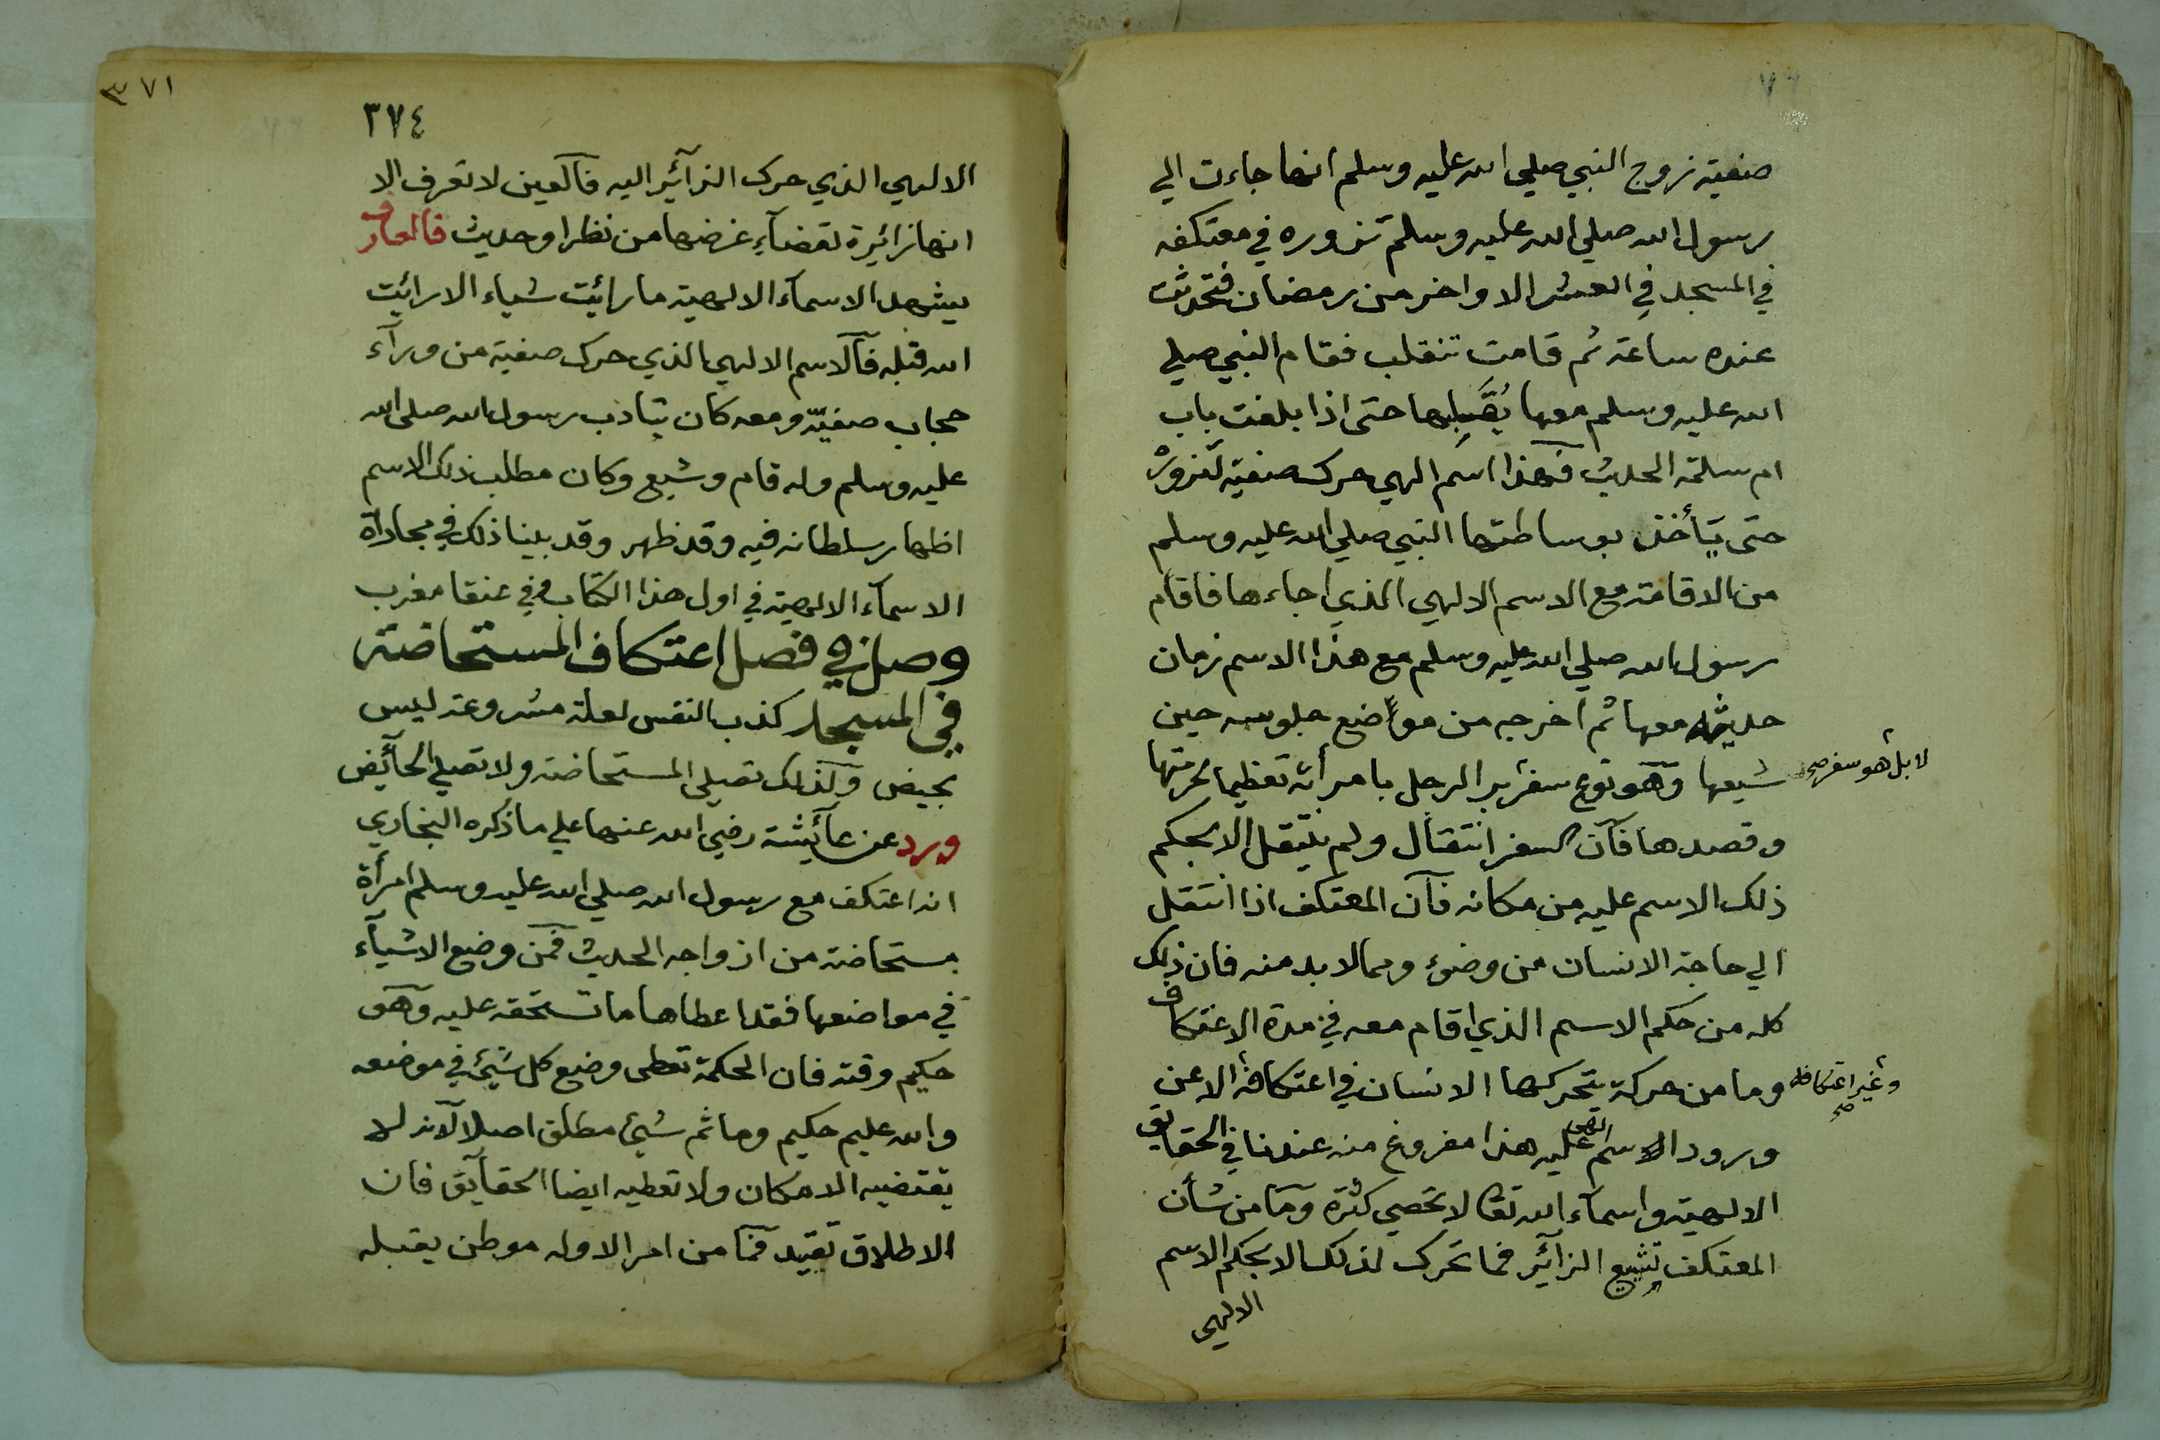 صفية زوج النبي صلي الله عليه وسلم انها جاءت الي
رسول الله صلي الله عليه وسلم تزوره في معتكفه
في المسجد في العشر الاواخر من رمضان فتحدثت
عنده ساعة ثم قامت تنقلب فقام النبي صلي
الله عليه وسلم معها يُقَبِلها حتى اذا بلغت باب
ام سلمة الحديث فهذا اسم الهي حرك صفية لتزوره
حتى يأخذ بوساطتها النبي صلي الله عليه وسلم
من الاقامة مع الاسم الالهي الذي جاءها فاقام
رسول الله صلي الله عليه وسلم مع هذا الاسم زمان
حديثه معها ثم اخرجه من مواضع جلوسه حين
شيعها وهو نوع سفر بر الرجل بامرأته تعظيما لحرمتها
لا بل هو سفر صح
وقصدها فان السفر انتقال ولم ينتقل الا بحكم
ذلك الاسم عليه من مكانه فان المعتكف اذا انتقل
الي حاجة الانسان من وضوء ومما لا بد منه فان ذلك
كله من حكم الاسم الذي اقام معه في مدة الاعتكاف
وما من حركة يتحركها الانسان في اعتكافه الا عن
وغير اعتكافه صح
ورود اسم الهي عليه هذا مفروغ منه عندنا في الحقايق
الالهية واسماء الله تعا لا تحصي كثرة وما من شأن
المعتكف تشييع الزائر فما تحرك لذلك الا بحكم الاسم
الالهي
٣٧١
٣٧٤
الالهي الذي حرك الزآئر اليه فالعين لا تعرف الا
انها زائرة لقضآء غرضها من نظر او حديث فالعارف
يشهد الاسمآء الالهية ما رائيت شياء الا رائيت
الله قبله فالاسم الالهي الذي حرك صفية من ورآء
حجاب صفيّة ومعه كان يتادب رسول الله صلى الله
عليه وسلم وله قام وشيع وكان مطلب ذلك الاسم
اظهار سلطانه فيه وقد ظهر وقد بينا ذلك في مجاراة
الاسمآء الالهية في اول هذا الكتاب وفي عنقا مغرب
وصل في فصل اعتكاف المستحاضة
في المسجد كذب النفس لعلة مشروعة ليس
بحيض وكذلك تصلي المستحاضة ولا تصلي الحآئض
ورد عن عآئشة رضي الله عنها علي ما ذكره البخاري
انه اعتكف مع رسول الله صلي الله عليه وسلم امرأة
مستحاضة من ازواجه الحديث فمن وضع الاشيآء
في مواضعها فقد اعطاها ما تستحقه عليه وهو
حكيم وقته فان الحكمة تعطى وضع كل شيئ في موضعه
والله عليم حكيم وما ثم شيئ مطلق اصلا لانه لا
يقتضيه الامكان ولا تعطيه ايضا الحقآيق فان
الاطلاق تقييد فما من امر الا وله موطن يقبله